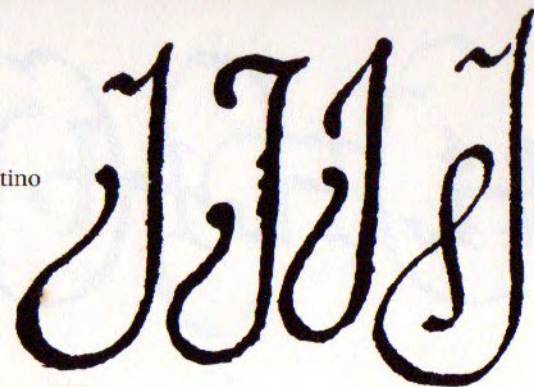 tino
J J J J